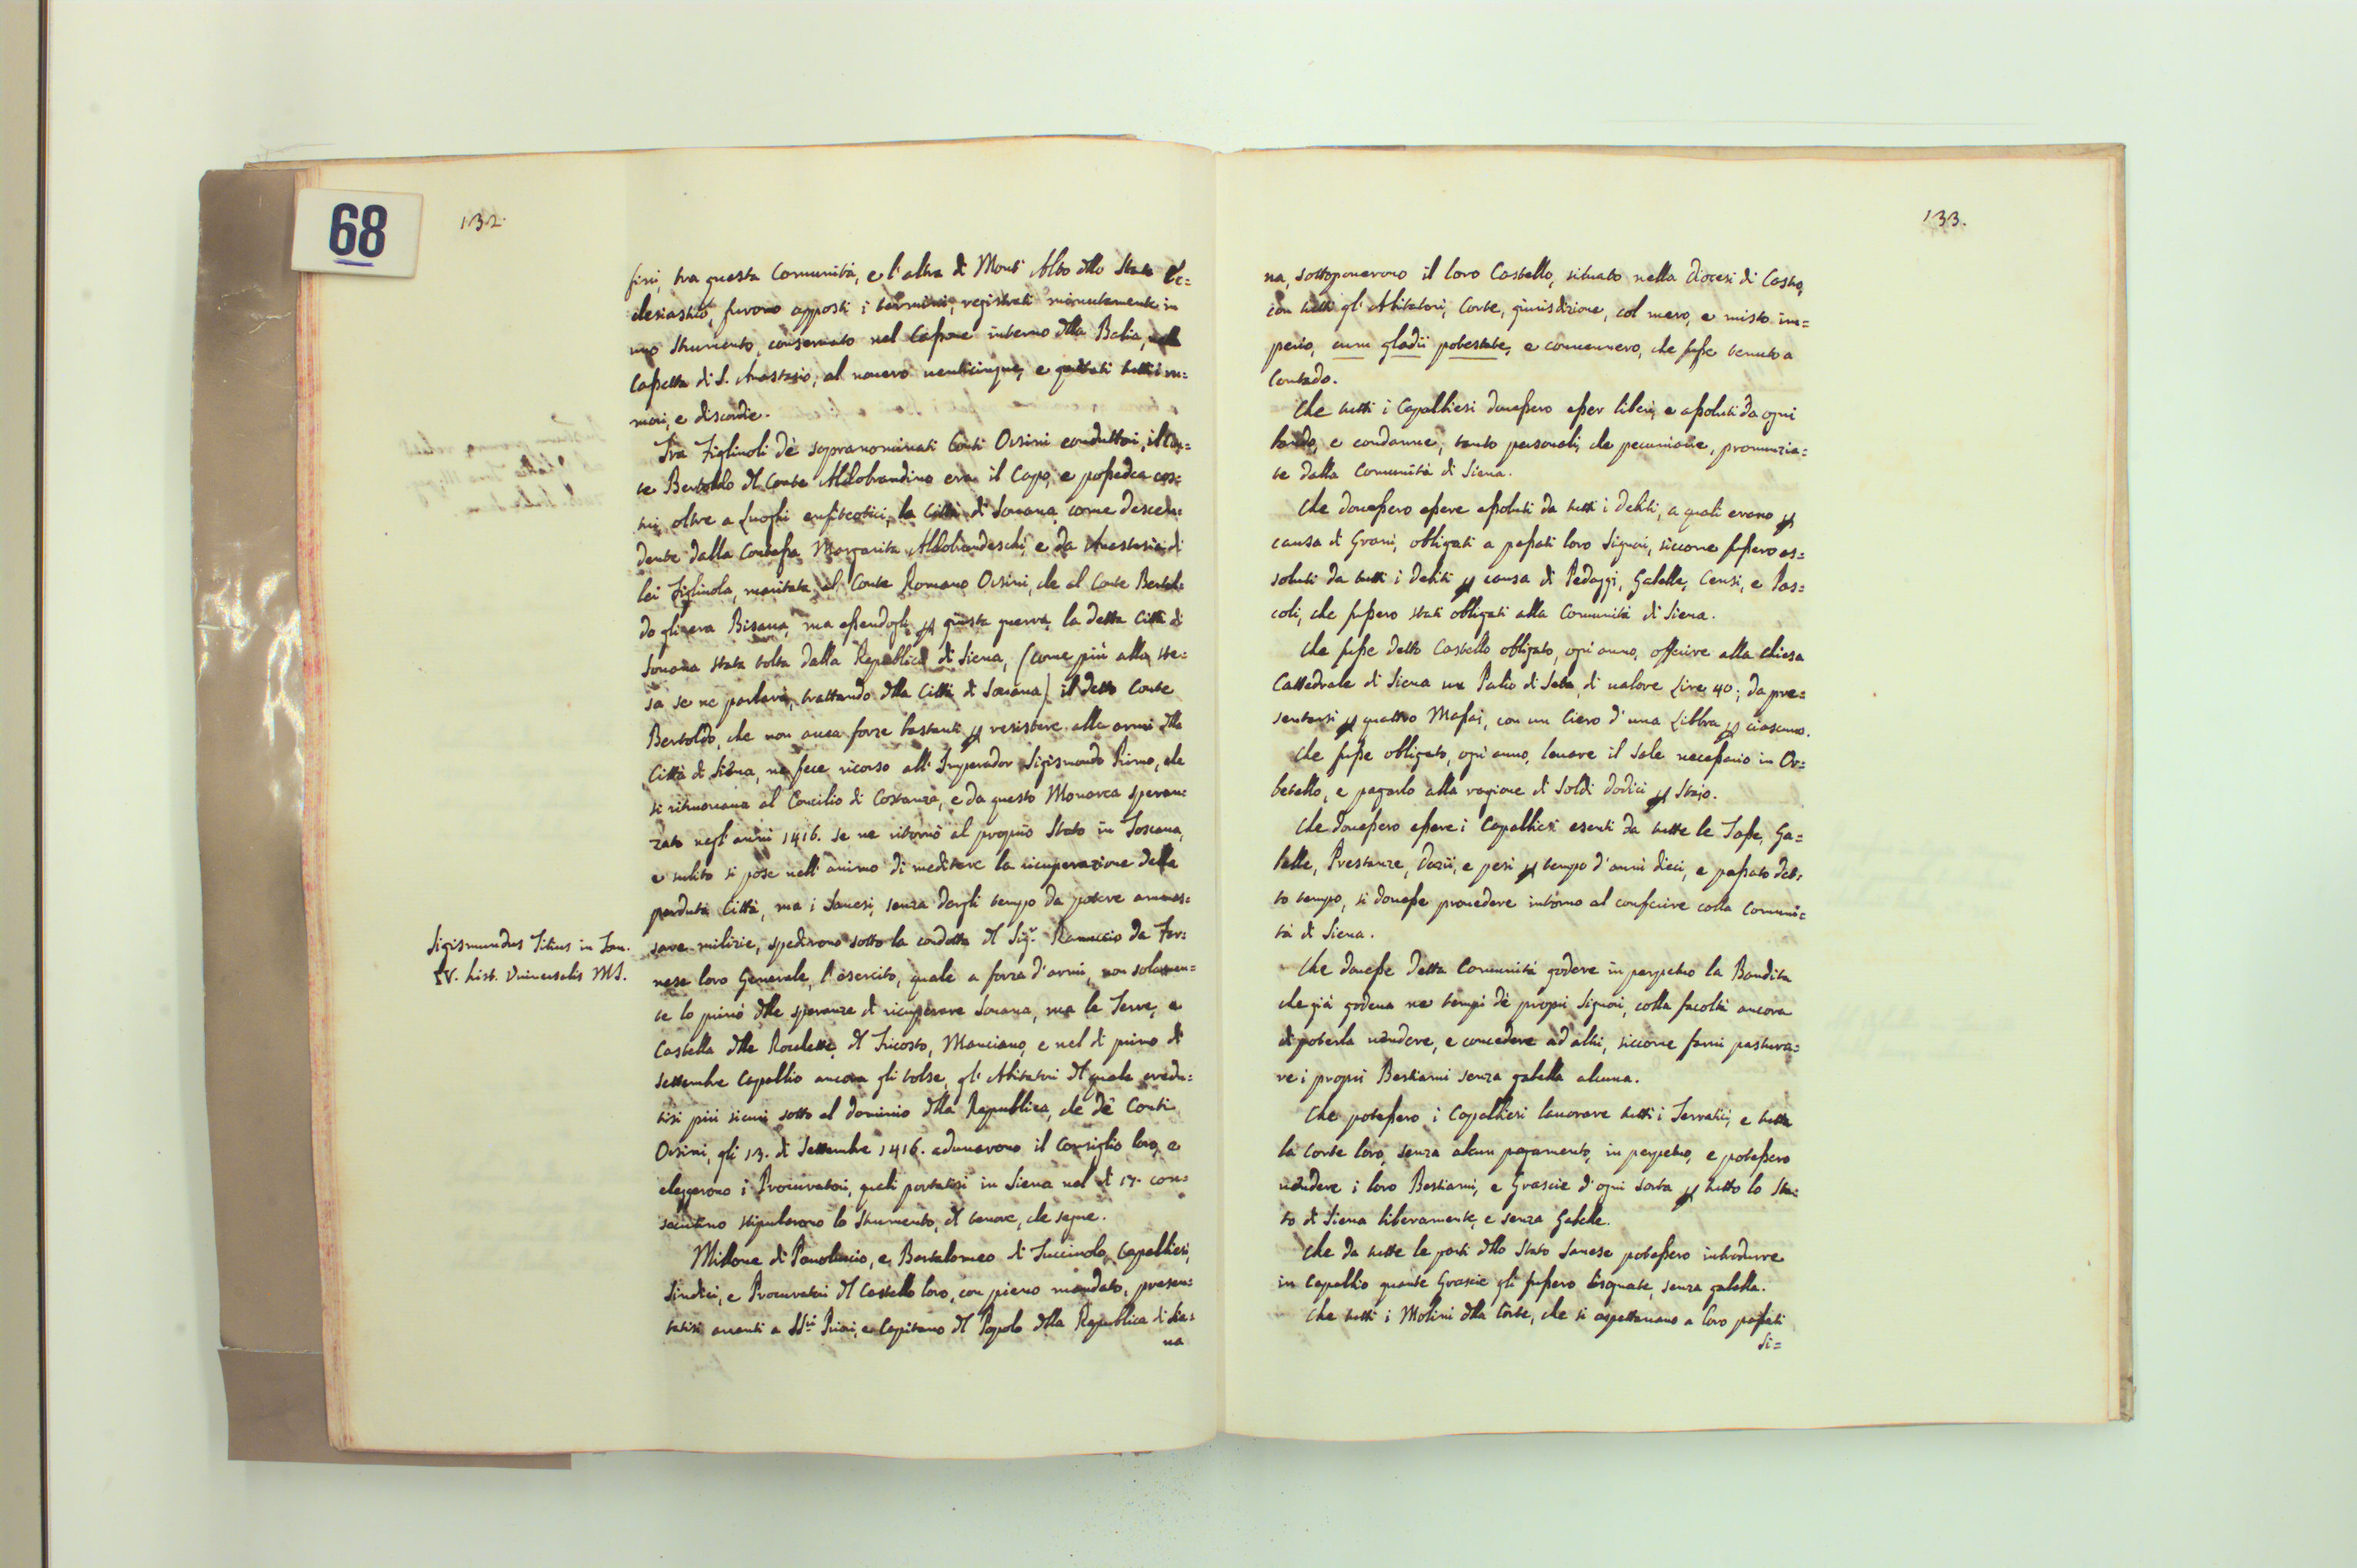 68
132.
fini, tra questa Comunità, e l'altra di Mont' Alto dllo Stato Ec=
clesiastico, furono apposti i termini, registrati minutamente in
uno Strumento, conservato nel Cassone interno dlla Balia,
Cassetta di S. Anastasio, al novero venticinque, e quietati tutti i ru=
mori, e discordie.
Tra Figlinoli de sopranominati Conti Orsini conduttori, il Con=
te Bertoldo dl Conte Aldobrandino era il Capo, e possedea cos=
tui oltre a Luoghi enfiteotici, la Città di Sovana, come descen=
dente dalla Contessa Margarita Aldobrandeschi, e da Anastasia di
lei Figlinola, maritata al Conte Romano Orsini, che al Conte Bertol=
do gli era Bisava, ma essendogli p giusta guerra, la detta Città di
Sovana stata tolta dalla Republica di Siena, (come più alla ste=
sa se ne parlerà, trattando dlla Città di Sovana) il detto Conte
Bertoldo, che non avea forze bastanti p resistere alle armi dlla
Città di Siena, ne fece ricorso all' Imperador Sigismondo Primo, che
si ritrovava al Concilio di Costanza, e da questo Monarca speran=
zato negl' anni 1416. se ne ritornò al proprio Stato in Toscana,
e subito si pose nell' animo di meditare la ricuperazione della
perduta Città, ma i Sanesi, senza dargli tempo da potere ammas=
sare milizie, spedirono sotto la condotta dl Sig.r Ranuccio da Far=
nese loro Generale, l'esercito, quale a forza d'armi, non solamen=
te lo privò dlle speranze di ricuperare Sovana, ma le Terre, e
Castella dlle Rocchette, dl Tricosto, Manciano, e nel dì primo di
Settembre Capalbio ancora gli tolse, gl' Abitatori dl quale credu=
tisi più sicuri sotto al dominio dlla Republica, che de Conti
Orsini, gli 13. di Settembre 1416. adunarono il Consiglio loro, e
eleggerono i Procuratori, quali portatisi in Siena nel dì 17. con=
secutivo stipularono lo Strumento, dl tenore, che segue.
Millone di Paoluccio, e Bartalomeo di Tuccinolo, Capalbiesi,
Sindici, e Procuratori dl Castello loro, con pieno mandato, presen=
tatisi avanti a SS.ri Priori, e Capitano dl Popolo dlla Republica di Sie=
na
Sigismundus Titius in Tom.
IV. hist. Universalis MS.
133.
na, sottoponerono il loro Castello, situato nella Diocesi di Castro,
con tutti gl' Abitatori, Corte, giurisdizione, col mero, e misto im=
perio, cum gladii potestate, e convennero, che fusse tenuto a
Contado.
Che tutti i Capalbiesi dovessero esser liberi, e assoluti da ogni
bando, e condanne, tanto personali, che pecuniarie, pronunzia=
te dalla Comunità di Siena.
Che dovessero essere assoluti da tutti i Debiti, a quali erano p
causa di Grani, obligati a passati loro Signori, siccome fussero as=
soluti da tutti i Debiti p causa di Pedaggi, Gabelle, Censi, e Pas=
coli, che fussero stati obligati alla Comunità di Siena.
Che fusse detto Castello obligato, ogni anno, offerire alla chiesa
Cattedrale di Siena un Palio di Seta, di valore Lire 40; da pre=
sentarsi p quattro Massai, con un Ciero d'una Libbra p ciascuno.
Che fusse obligato, ogni anno, levare il Sale necessario in Or=
betello, e pagarlo alla ragione di Soldi dodici p Staio.
Che dovessero essere i Capalbiesi esenti da tutte le Tasse, Ga=
belle, Prestanze, Dazii, e pesi p tempo d'anni dieci, e passato det=
to tempo, si dovesse provedere intorno al conferire colla Comuni=
tà di Siena.
Che dovesse detta Comunità godere in perpetuo la Bandita
che già godeva ne tempi de proprii Signori, colla facoltà ancora
di poterla vendere, e concedere ad altri, siccome farvi pastura=
re i proprii Bestiami senza gabella alcuna.
Che potessero i Capalbiesi lavorare tutti i Terratici, e tutta
la Corte loro, senza alcun pagamento, in perpetuo, e potessero
vendere i loro Bestiami, e Grascie d'ogni sorta p tutto lo Sta=
to di Siena liberamente, e senza Gabelle.
Che da tutte le parti dllo Stato Sanese potessero introdurre
in Capalbio quante Grascie gli fussero bisognate, senza gabella.
Che tutti i Molini dlla Corte, che si aspettavano a loro passati
Si=